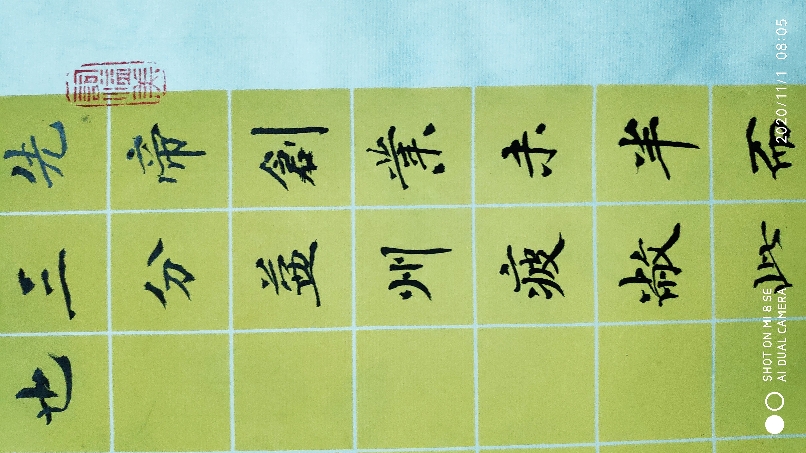 先帝創業未半而
三分益州疲敝此
也
2020/11/1 08:05
SHOT ON MI 8 SE
AI DUAL CAMERA